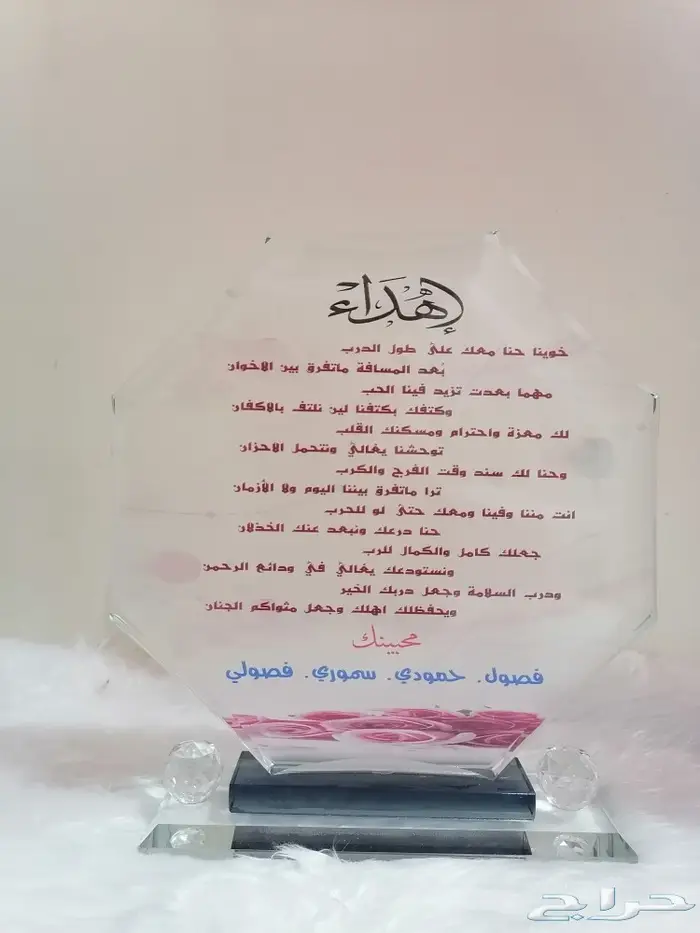 إهداء
خوينا حنا معك على طول الدرب
بُعد المسافة ماتفرق بين الاخوان
مهما بعدت تزيد فينا الحب
وكتفك بكتفنا لين نلتف بالاكفان
لك معزة واحترام ومسكنك القلب
توحشنا يغالي ونتحمل الاحزان
وحنا لك سند وقت الفرح والكرب
ترا ماتفرق بيننا اليوم ولا الأزمان
انت مننا وفينا ومعك حتى لو للحرب
حنا درعك ونبعد عنك الخذلان
جعلك كامل والكمال للرب
ونستودعك يغالي في ودائع الرحمن
ودرب السلامة وجعل دربك الخير
ويحفظلك اهلك وجعل مثواكم الجنان
محبينك
فصول. حمودي. سموري. فصولي
حراج